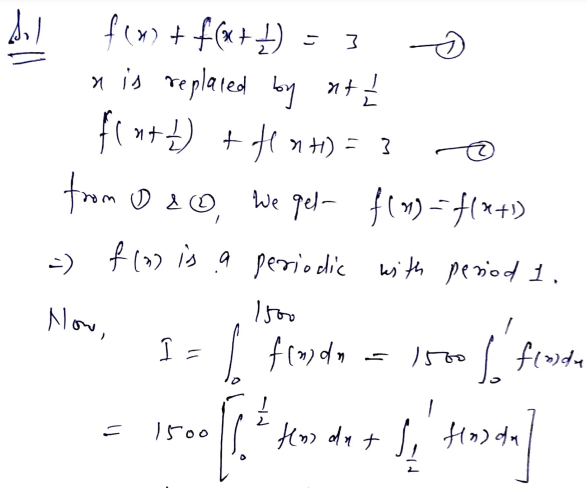 Sol f(x) + f(x + 1/2) = 3 —①
x is replaced by x + 1/2
f(x + 1/2) + f(x+1) = 3 —②
from ① & ②, we get f(x) = f(x+1)
=> f(x) is a periodic with period 1.
Now, I = ∫₀¹⁵⁰⁰ f(x) dx = 1500 ∫₀¹ f(x) dx
= 1500 [∫₀^{1/2} f(x) dx + ∫_{1/2}^1 f(x) dx]